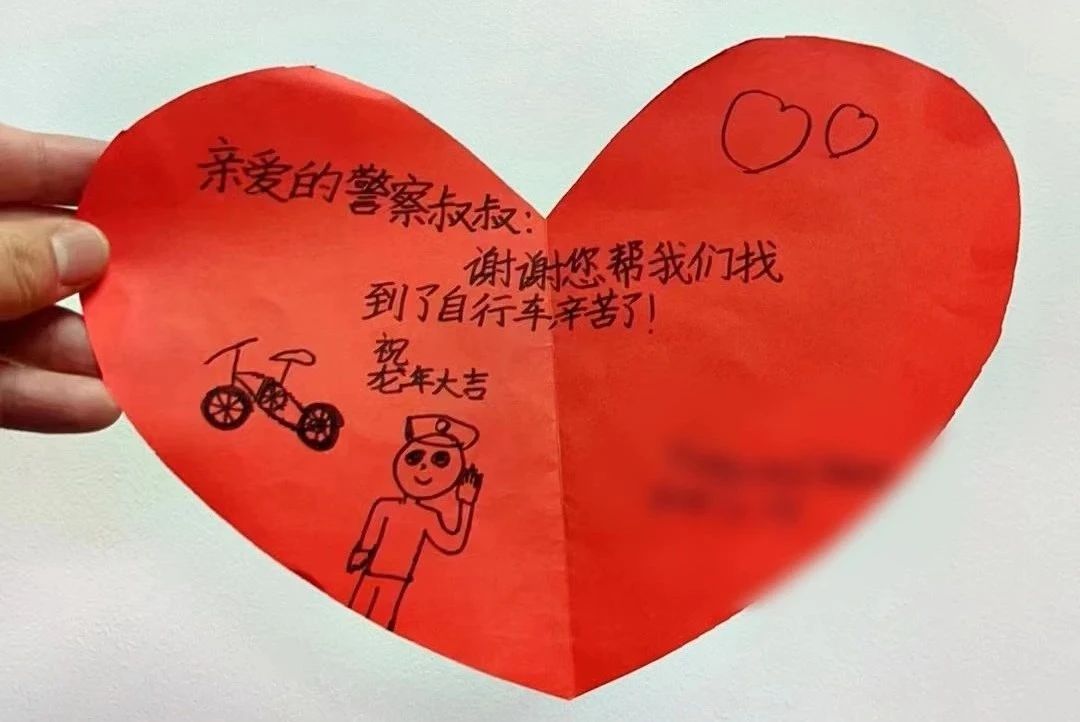 亲爱的警察叔叔：
谢谢您帮我们找
到了自行车,辛苦了！
祝
老年大吉